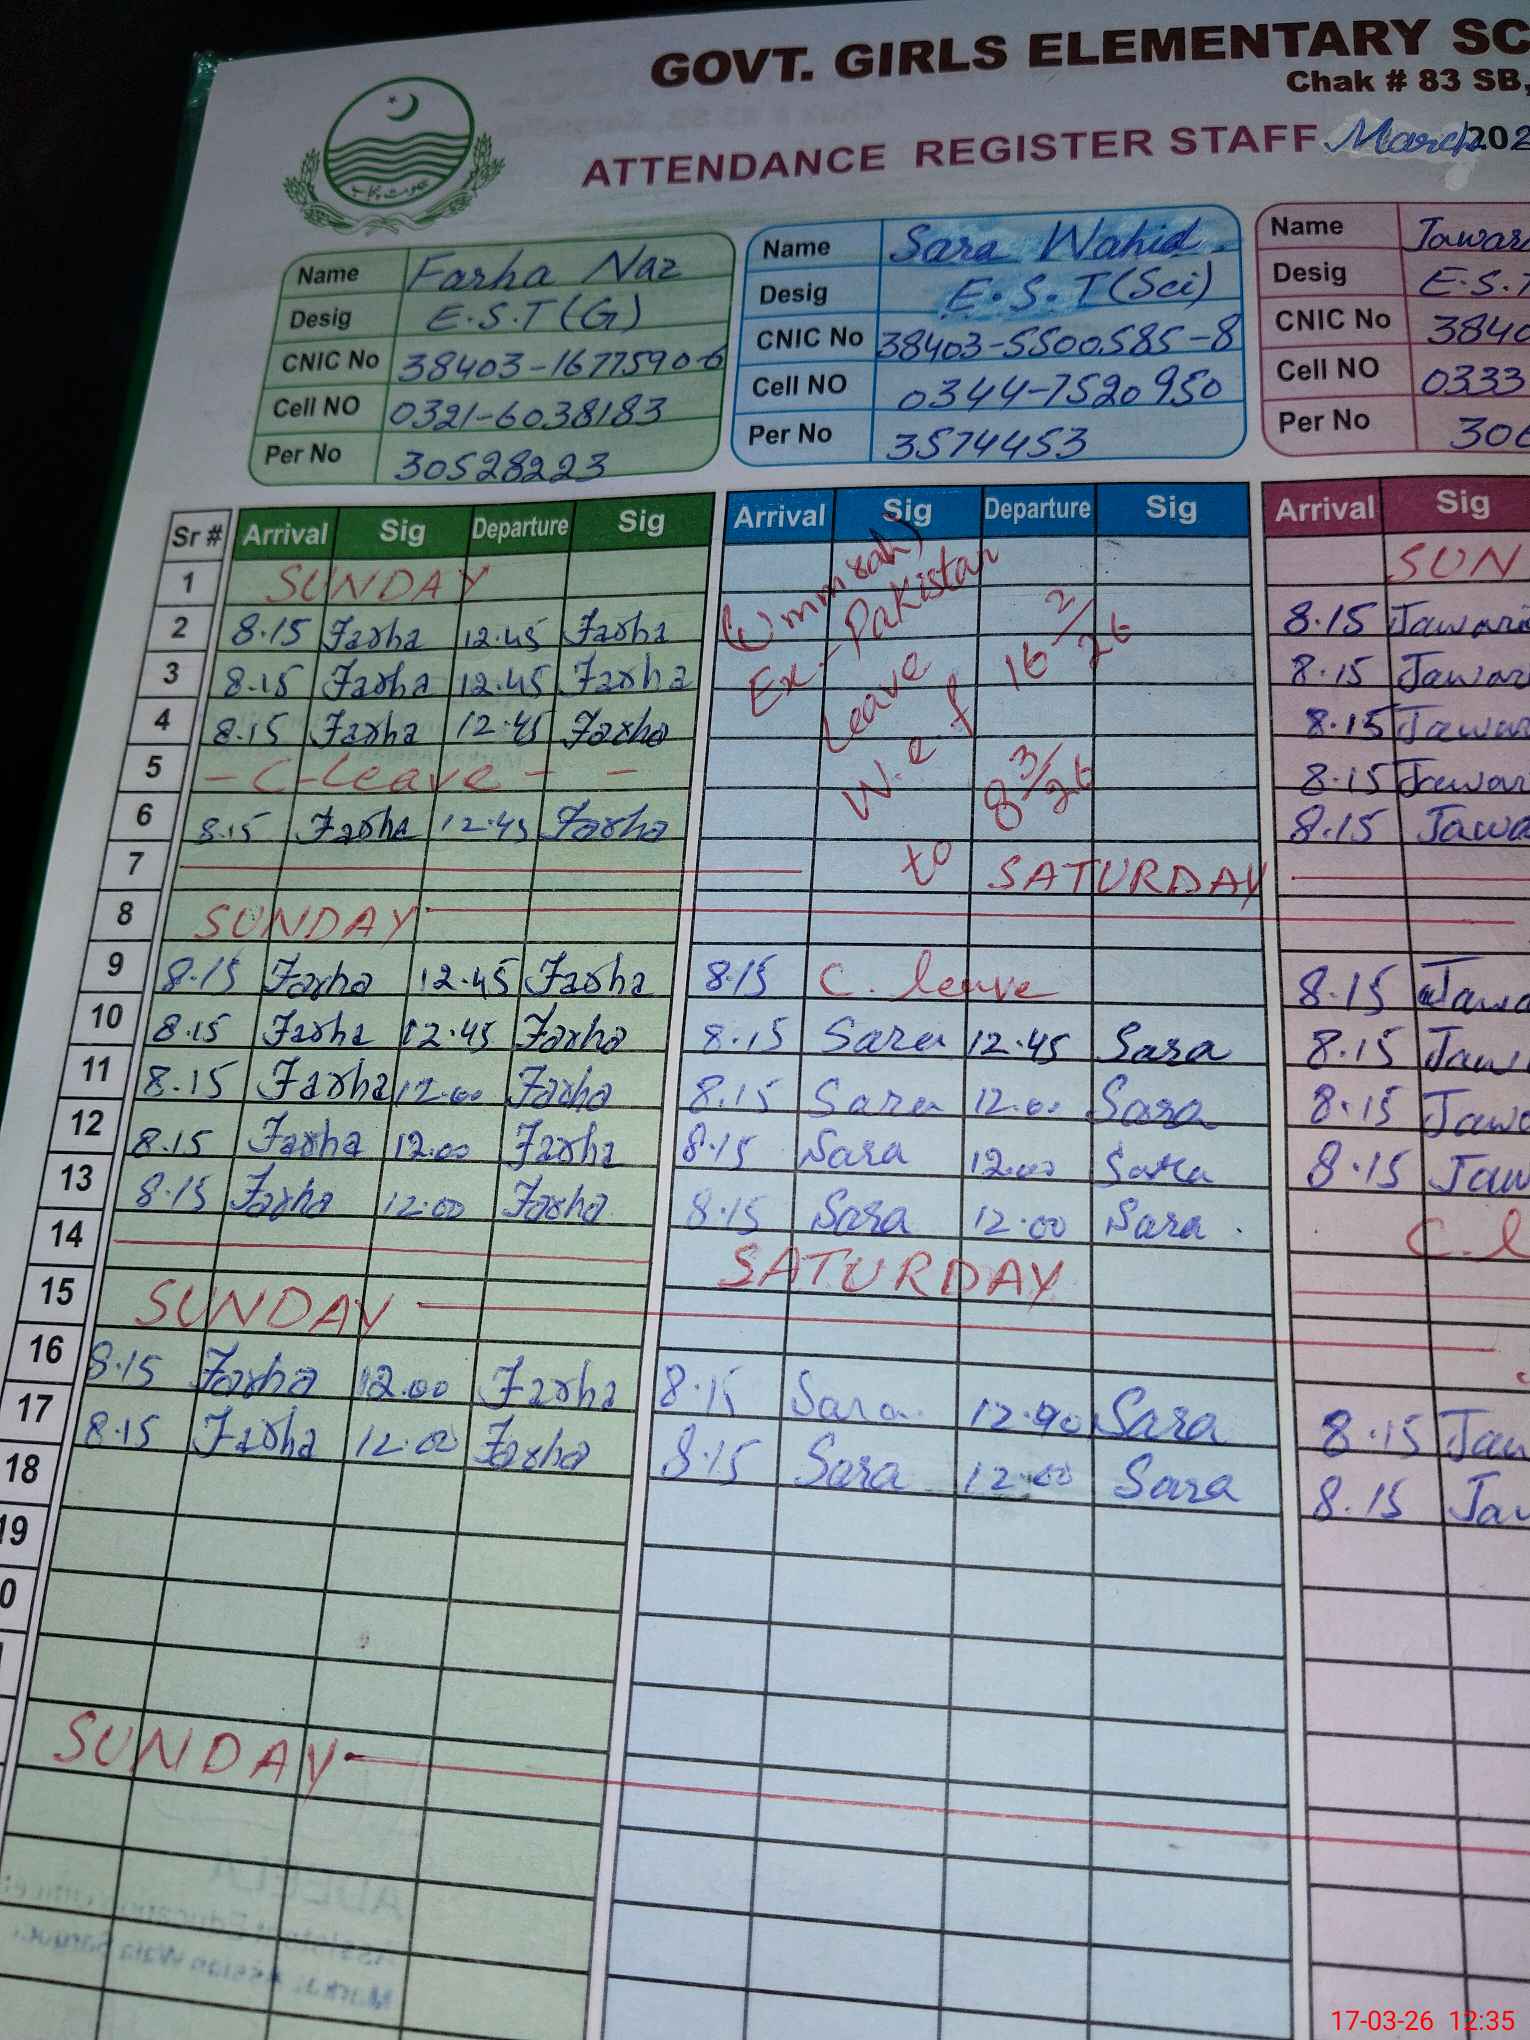 GOVT. GIRLS ELEMENTARY SC
Chak # 83 SB,
ATTENDANCE REGISTER STAFF March 202
حکومت پنجاب
Name Farha Naz
Desig E.S.T (G)
CNIC No 38403-1677590-6
Cell NO 0321-6038183
Per No 30528223
Name Sara Wahid
Desig E.S.T (Sci)
CNIC No 38403-5500585-8
Cell NO 0344-7520950
Per No 3574453
Name Jawar
Desig E.S.T
CNIC No 3840
Cell NO 0333
Per No 306
Sr # Arrival Sig Departure Sig Arrival Sig Departure Sig Arrival Sig
1 SUNDAY SUN
2 8.15 Farha 12.45 Farha 8.15 Jawari
3 8.15 Farha 12.45 Farha 8.15 Jawar
4 8.15 Farha 12.45 Farha 8.15 Jawar
5 - C-Leave - - 8.15 Jawar
6 8.15 Farha 12.45 Farha 8.15 Jawa
(Ummrah)
Ex-Pakistan
Leave
W.e.f 16 2/26
to 8 3/26
7 SATURDAY
8 SUNDAY
9 8.15 Farha 12.45 Farha 8.15 C. leave 8.15 Jawa
10 8.15 Farha 12.45 Farha 8.15 Sara 12.45 Sara 8.15 Jaw
11 8.15 Farha 12.00 Farha 8.15 Sara 12.00 Sara 8.15 Jawa
12 8.15 Farha 12.00 Farha 8.15 Sara 12.00 Sara 8.15 Jaw
13 8.15 Farha 12.00 Farha 8.15 Sara 12.00 Sara C. l
14 SATURDAY
15 SUNDAY
16 8.15 Farha 12.00 Farha 8.15 Sara 12.00 Sara 8.15 Jaw
17 8.15 Farha 12.00 Farha 8.15 Sara 12.00 Sara 8.15 Jaw
18
19
0
SUNDAY
17-03-26 12:35